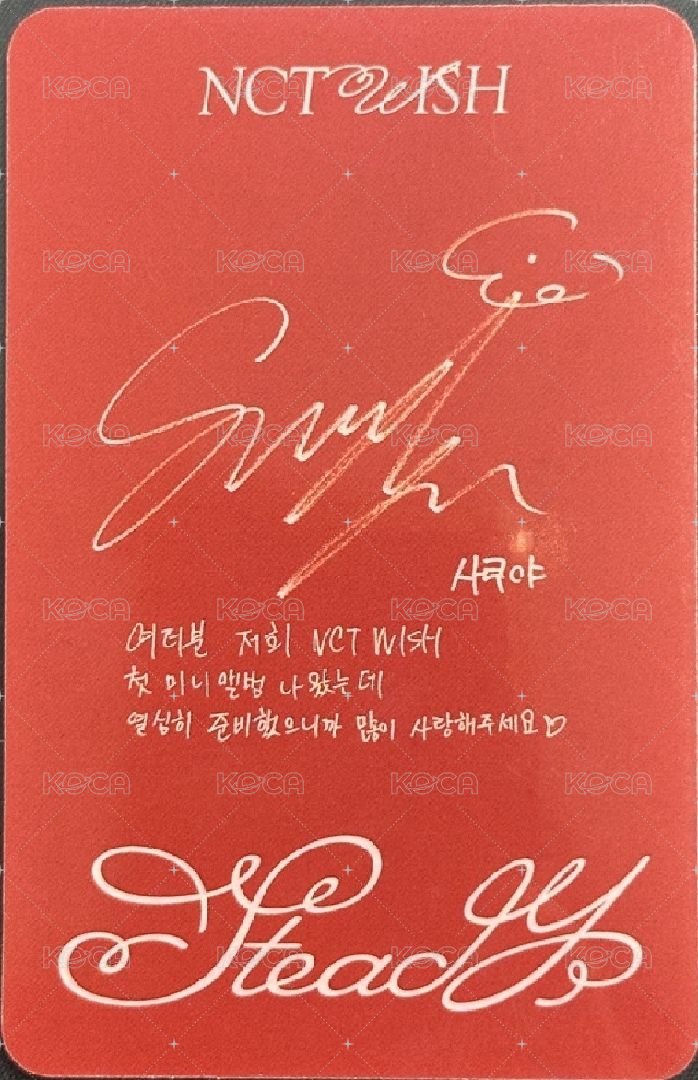 NCT WISH
사쿠야
여러분 저희 NCT WISH
첫 미니 앨범 나왔는데
열심히 준비했으니까 많이 사랑해주세요♡
Steady